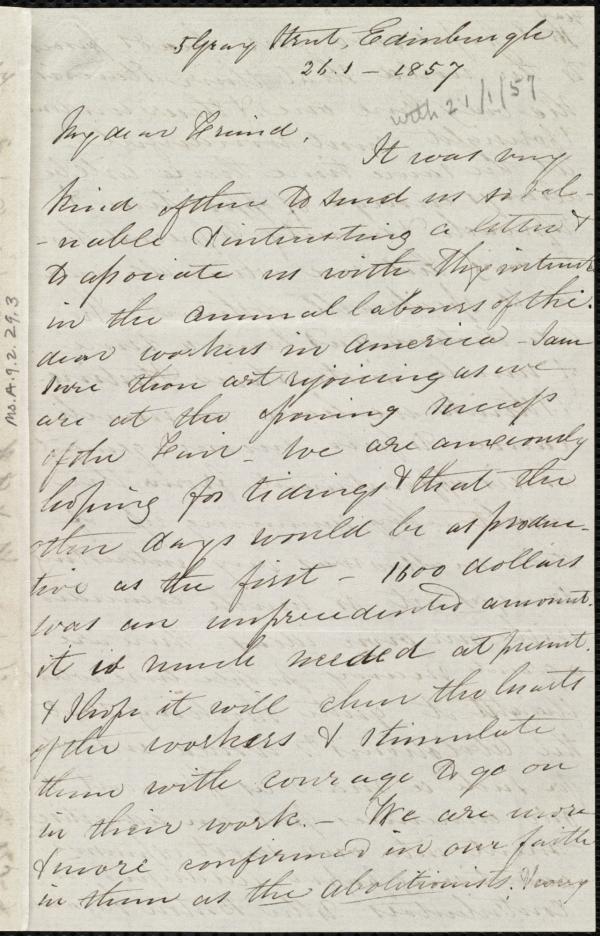 5 Gray Street, Edinburgh
26.1 - 1857
with 21/1/57
My dear Friend,
It was very
kind of thee to send us so val-
-uable & interesting a letter &
to associate us with thy interest
in the annual labours of the
dear workers in America - I am
sure thou art rejoicing as we
are at the opening success
of the Fair - We are anxiously
hoping for tidings & that the
other days would be as produc-
tive as the first - 1600 dollars
was an unprecedented amount.
it is much needed at present.
& I hope it will cheer the hearts
of the workers & stimulate
them with courage to go on
in their work. - We are more
& more confirmed in our faith
in them as the abolitionists. &
Ms. A. 9. 2. 29, 3